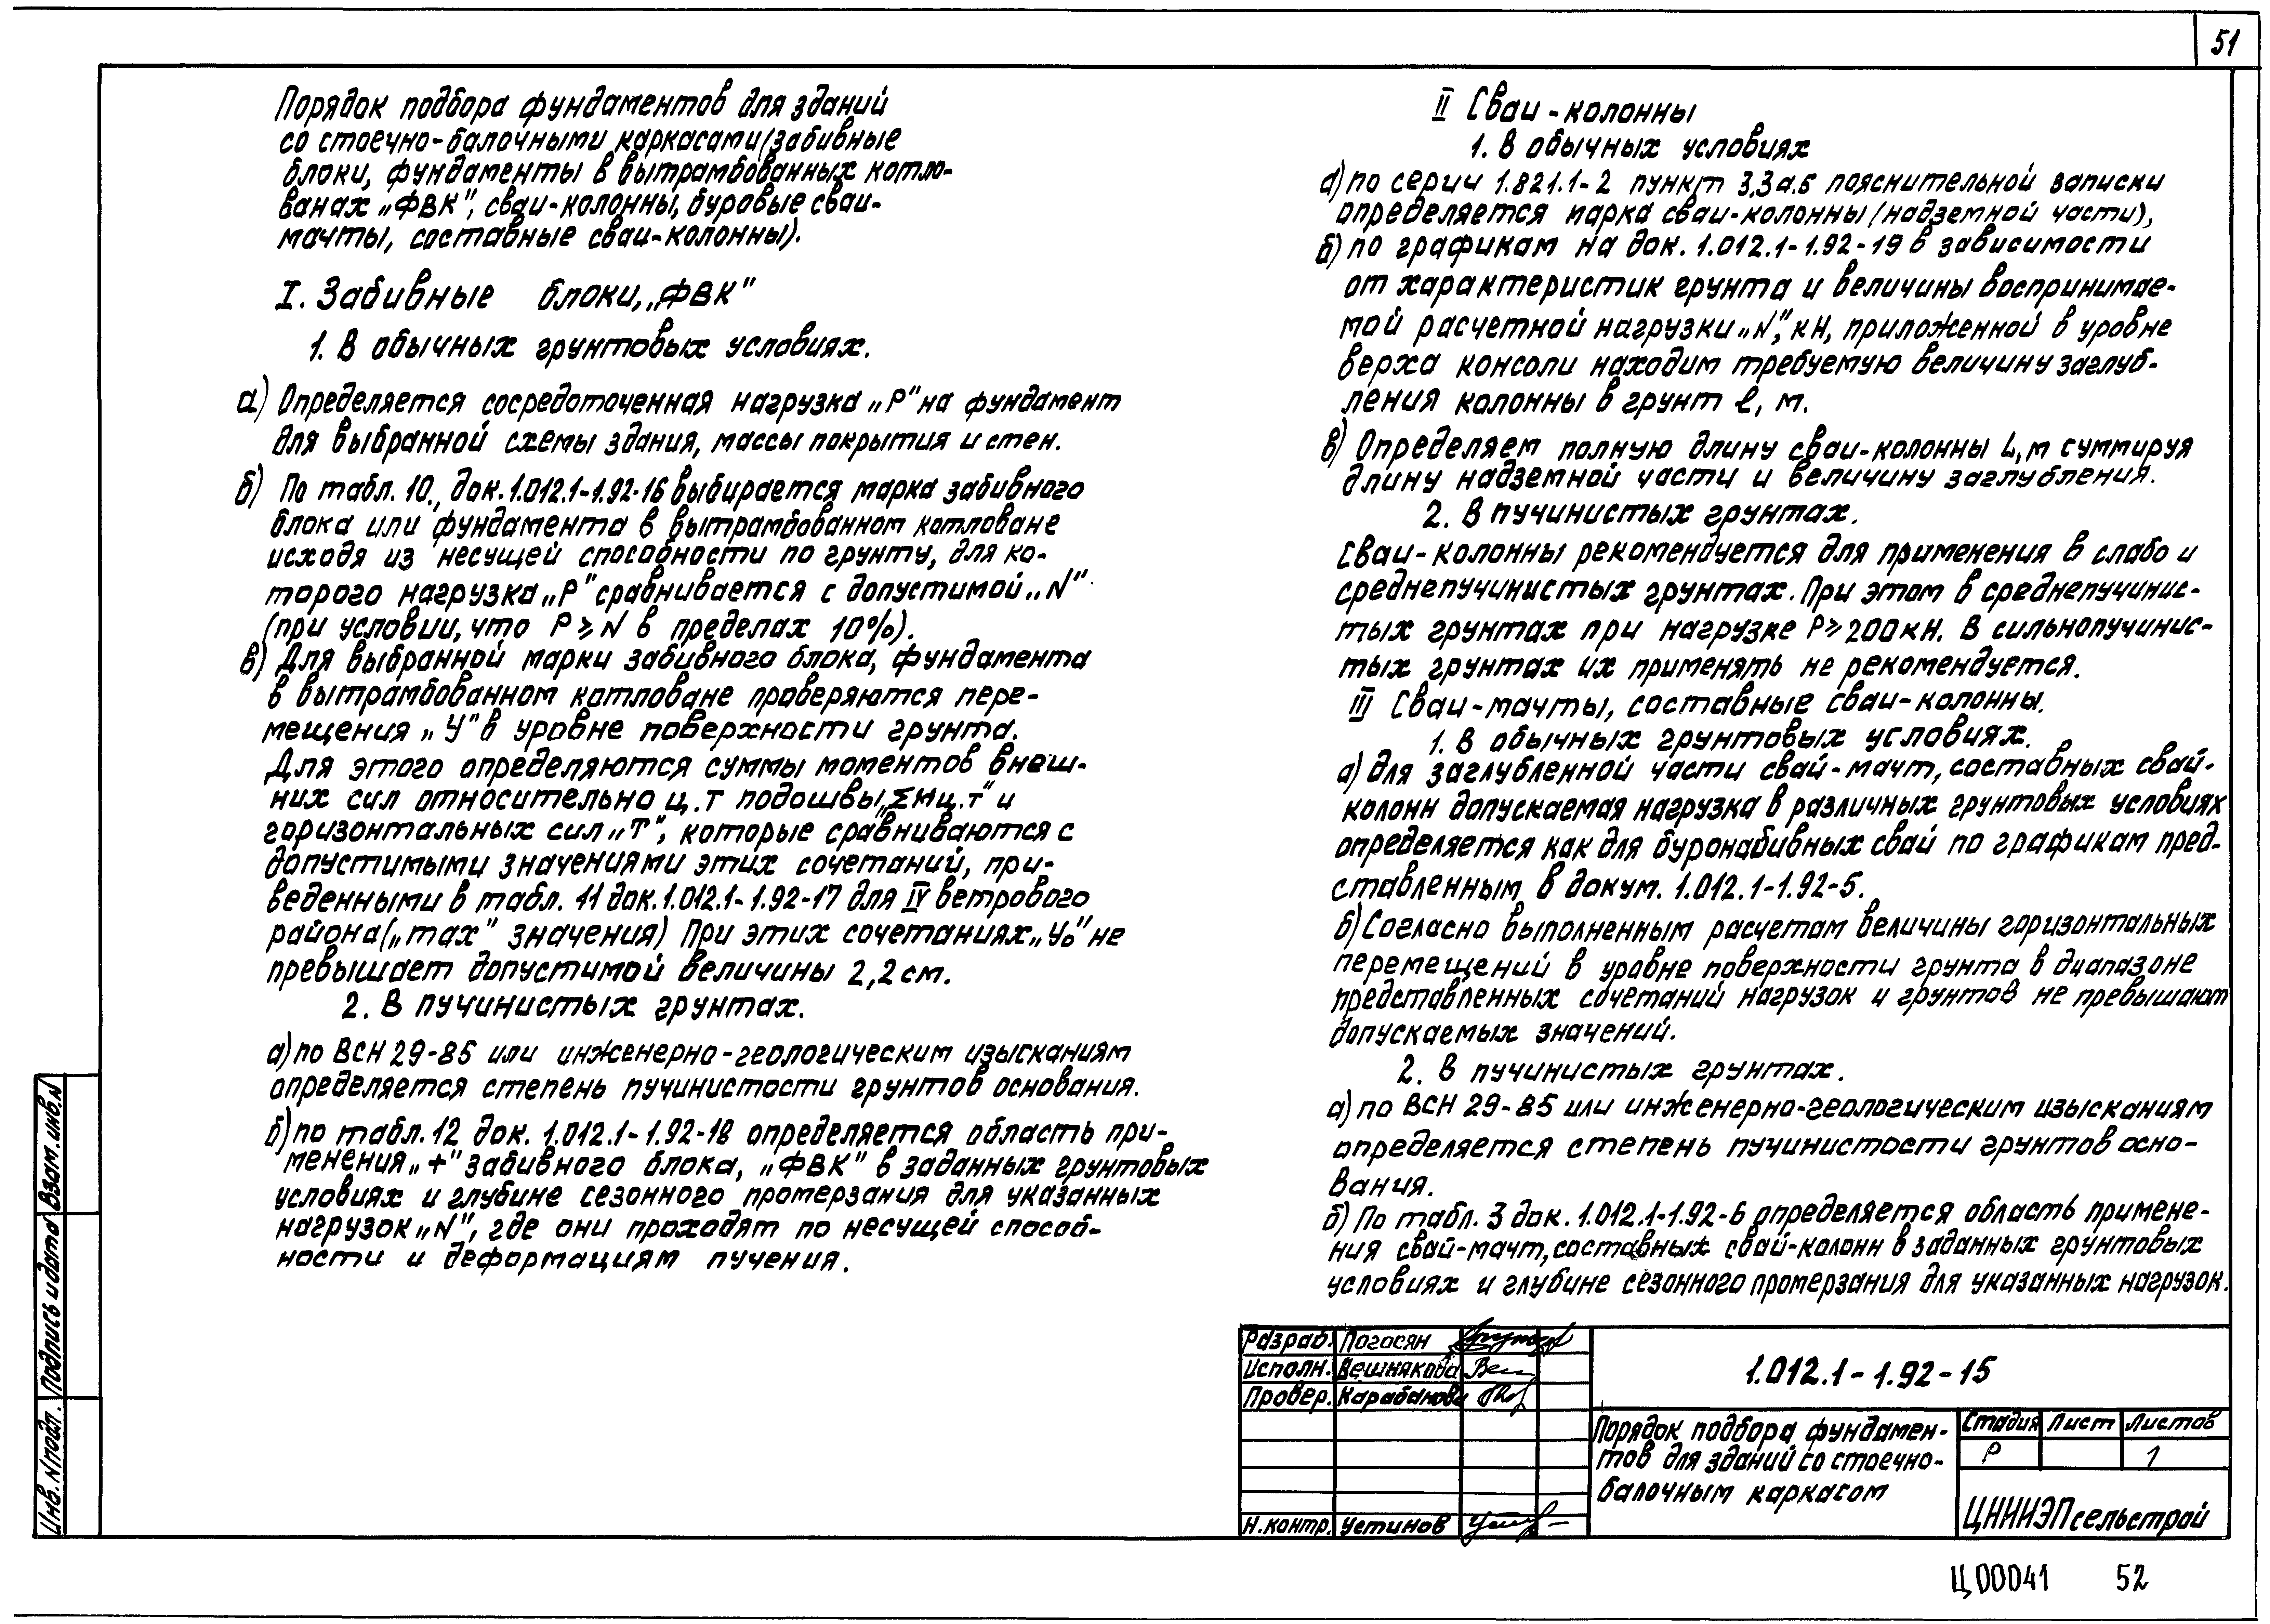 51
Порядок подбора фундаментов для зданий
со стоечно-балочными каркасами (забивные
блоки, фундаменты в вытрамбованных котло-
ванах „ФВК", сваи-колонны, буровые сваи-
мачты, составные сваи-колонны).
I. Забивные блоки, „ФВК"
1. В обычных грунтовых условиях.
а) Определяется сосредоточенная нагрузка „Р" на фундамент
для выбранной схемы здания, массы покрытия и стен.
б) По табл. 10, док. 1.012.1-1.92-16 выбирается марка забивного
блока или фундамента в вытрамбованном котловане
исходя из несущей способности по грунту, для ко-
торого нагрузка „Р" сравнивается с допустимой „N"
(при условии, что Р ⩾ N в пределах 10%).
в) Для выбранной марки забивного блока, фундамента
в вытрамбованном котловане проверяются пере-
мещения „У" в уровне поверхности грунта.
Для этого определяются суммы моментов внеш-
них сил относительно ц.т подошвы „ΣМц.т" и
горизонтальных сил „Т", которые сравниваются с
допустимыми значениями этих сочетаний, при-
веденными в табл. 11 док. 1.012.1-1.92-17 для IV ветрового
района („max" значения) При этих сочетаниях „У₀" не
превышает допустимой величины 2,2 см.
2. В пучинистых грунтах.
а) по ВСН 29-85 или инженерно-геологическим изысканиям
определяется степень пучинистости грунтов основания.
б) по табл. 12 док. 1.012.1-1.92-18 определяется область при-
менения „+" забивного блока, „ФВК" в заданных грунтовых
условиях и глубине сезонного промерзания для указанных
нагрузок „N", где они проходят по несущей способ-
ности и деформациям пучения.
II Сваи-колонны
1. В обычных условиях
а) по серии 1.821.1-2 пункт 3,3а.б пояснительной записки
определяется марка сваи-колонны (надземной части),
б) по графикам на док. 1.012.1-1.92-19 в зависимости
от характеристик грунта и величины воспринимае-
мой расчетной нагрузки „N", кН, приложенной в уровне
верха консоли находим требуемую величину заглуб-
ления колонны в грунт ℓ, м.
в) Определяем полную длину сваи-колонны L, м суммируя
длину надземной части и величину заглубления.
2. В пучинистых грунтах.
Сваи-колонны рекомендуется для применения в слабо и
среднепучинистых грунтах. При этом в среднепучинис-
тых грунтах при нагрузке Р ⩾ 200 кН. В сильнопучинис-
тых грунтах их применять не рекомендуется.
III Сваи-мачты, составные сваи-колонны.
1. В обычных грунтовых условиях.
а) для заглубленной части свай-мачт, составных свай-
колонн допускаемая нагрузка в различных грунтовых условиях
определяется как для буронабивных свай по графикам пред-
ставленным в докум. 1.012.1-1.92-5.
б) Согласно выполненным расчетам величины горизонтальных
перемещений в уровне поверхности грунта в диапазоне
представленных сочетаний нагрузок и грунтов не превышают
допускаемых значений.
2. В пучинистых грунтах.
а) по ВСН 29-85 или инженерно-геологическим изысканиям
определяется степень пучинистости грунтов осно-
вания.
б) По табл. 3 док. 1.012.1-1.92-6 определяется область примене-
ния свай-мачт, составных свай-колонн в заданных грунтовых
условиях и глубине сезонного промерзания для указанных нагрузок.
Инв. N подл. Подпись и дата Взам. инв. N
Разраб. Погосян
Исполн. Вешнякова
Провер. Карабанова
Н.контр. Устинов
1.012.1-1.92-15
Порядок подбора фундамен-
тов для зданий со стоечно-
балочным каркасом
Стадия Лист Листов
Р 1
ЦНИИЭПсельстрой
Ц00041 52